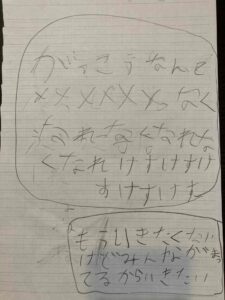 がっこうなんて
メメメメメっなく
なれなくなれな
くなれけすけすけ
すけすけす
もういきたくない
けどみんながまっ
てるからいきたい